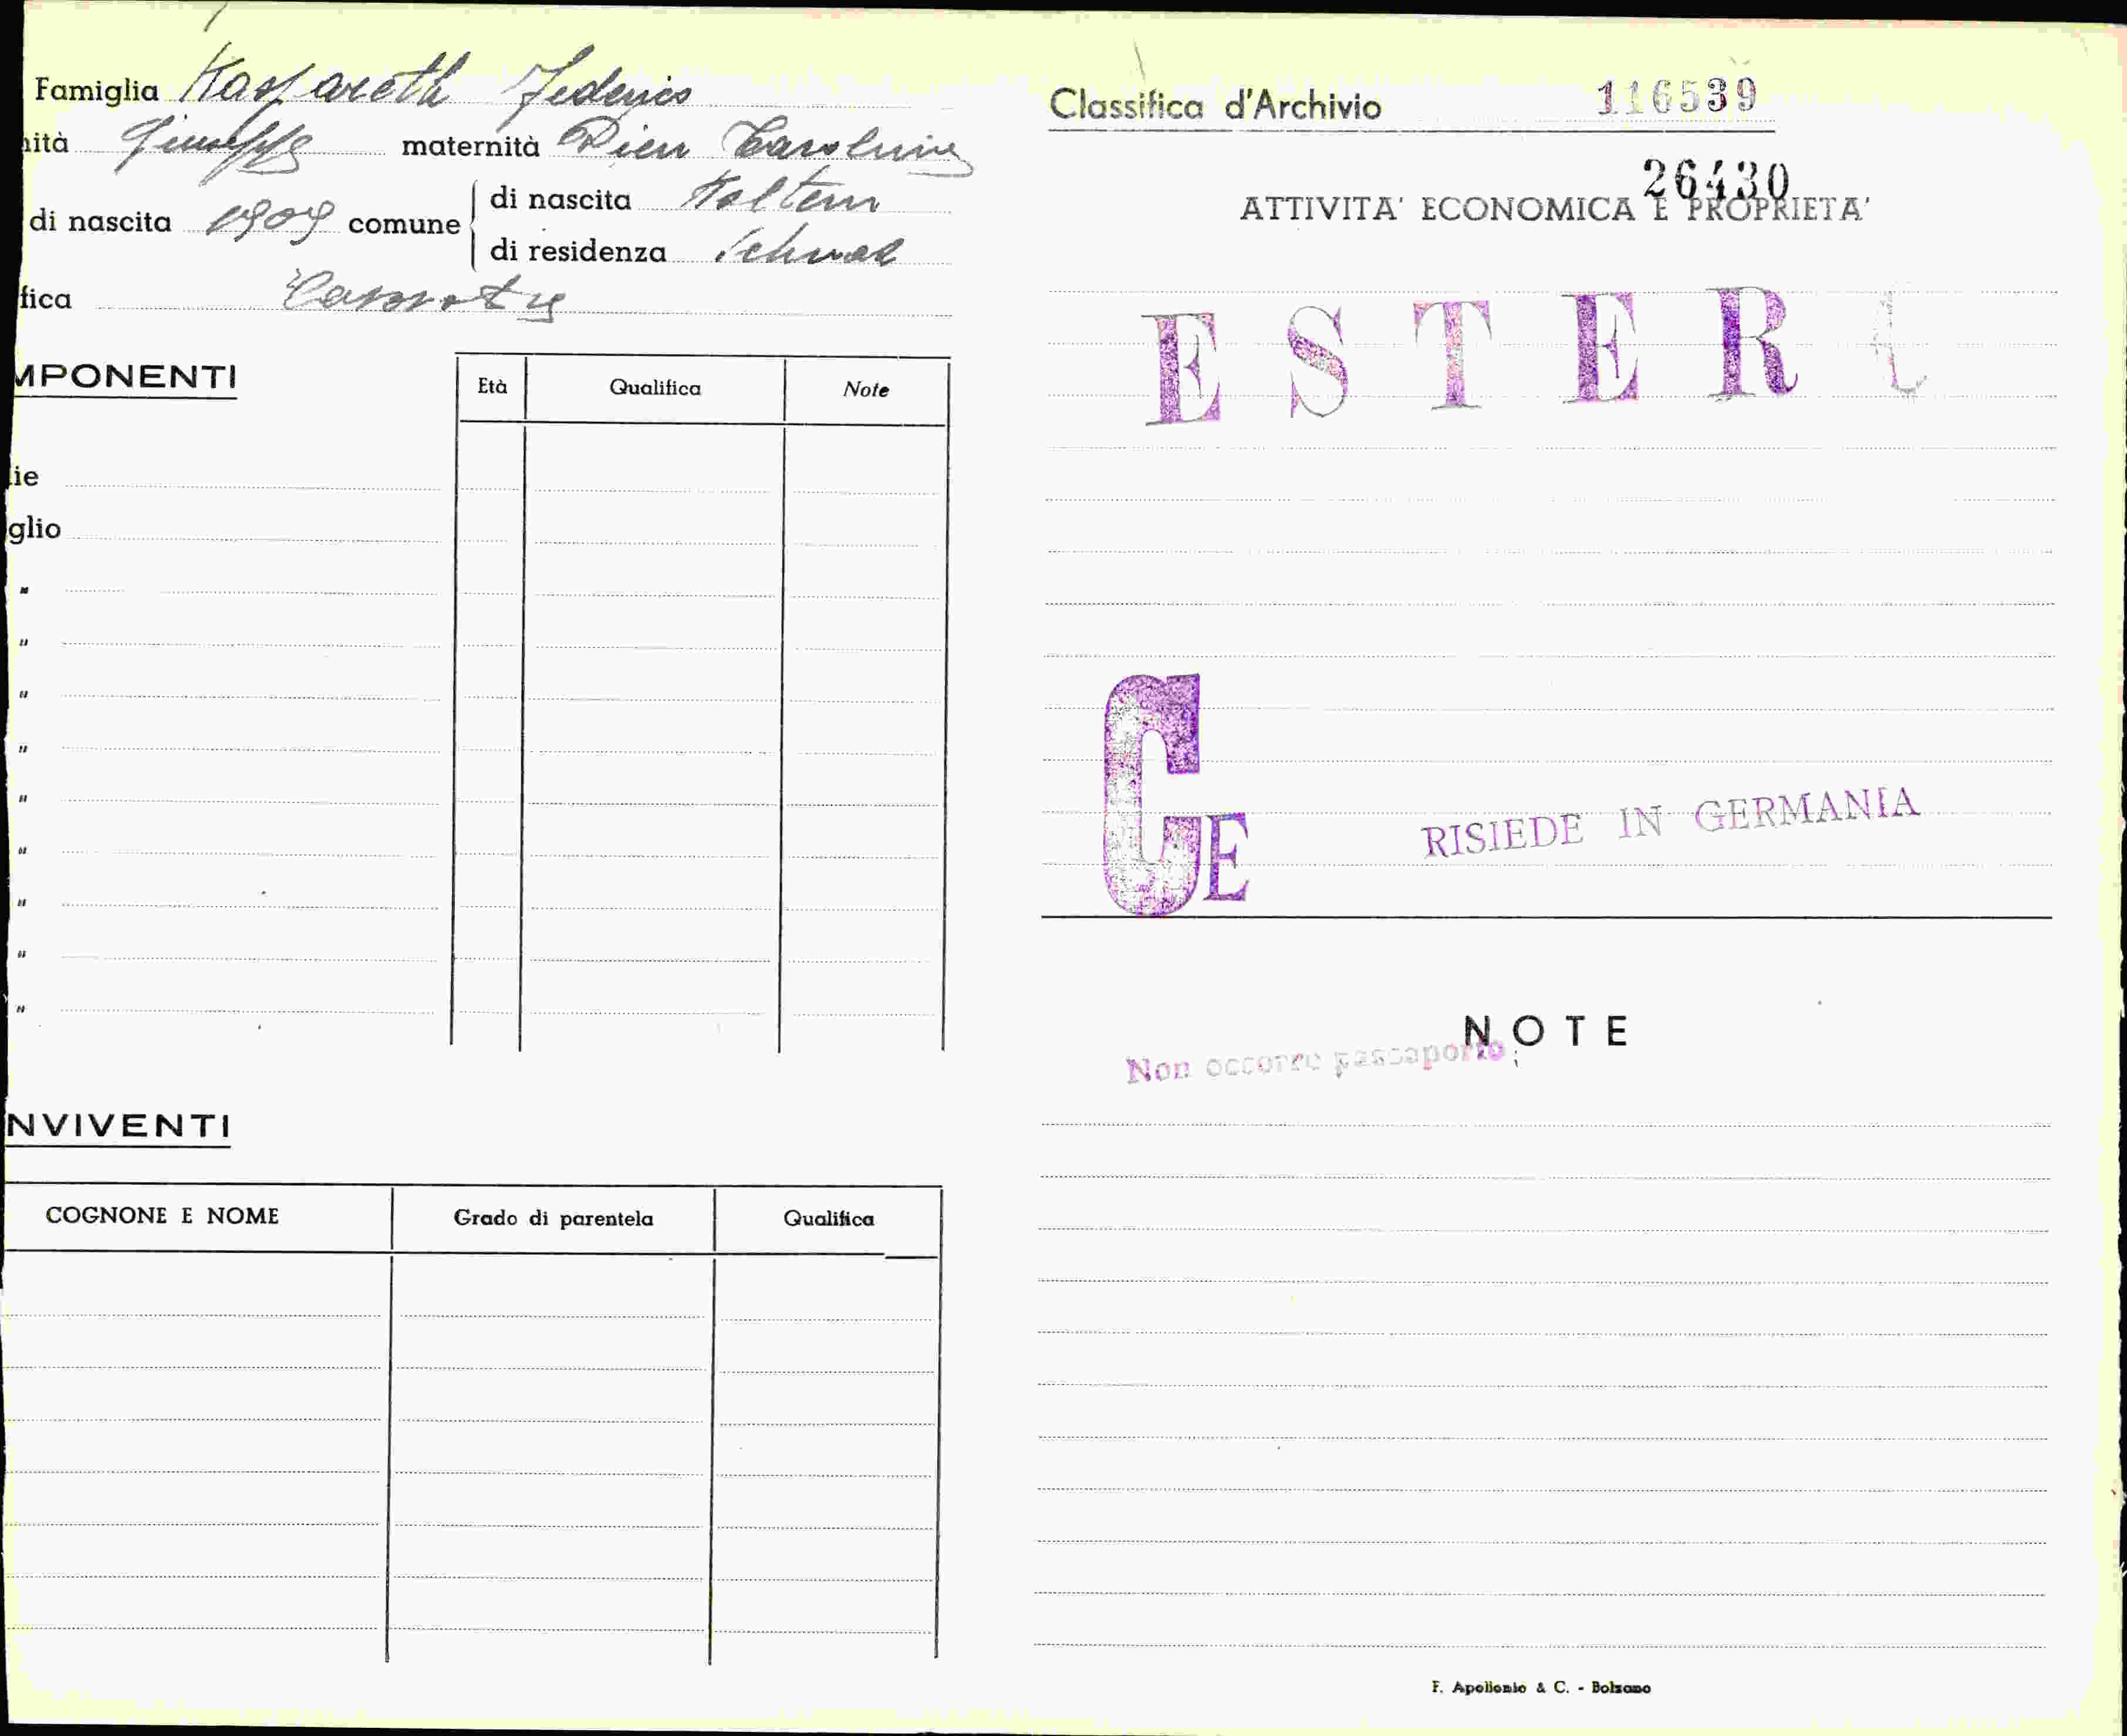 Famiglia Kaspareth Federico
nità Giuseppe maternità Carolina
di nascita 1909 comune di nascita Kaltern
di residenza Schwaz
fica
MPONENTI
Età Qualifica Note
lie
glio
"
"
"
"
"
"
"
"
"
NVIVENTI
COGNONE E NOME Grado di parentela Qualifica
Classifica d'Archivio 116539
26430
ATTIVITA' ECONOMICA E PROPRIETA'
ESTERI
CE
RISIEDE IN GERMANIA
NOTE
Non occorre passaporto;
F. Apollonio & C. - Bolzano